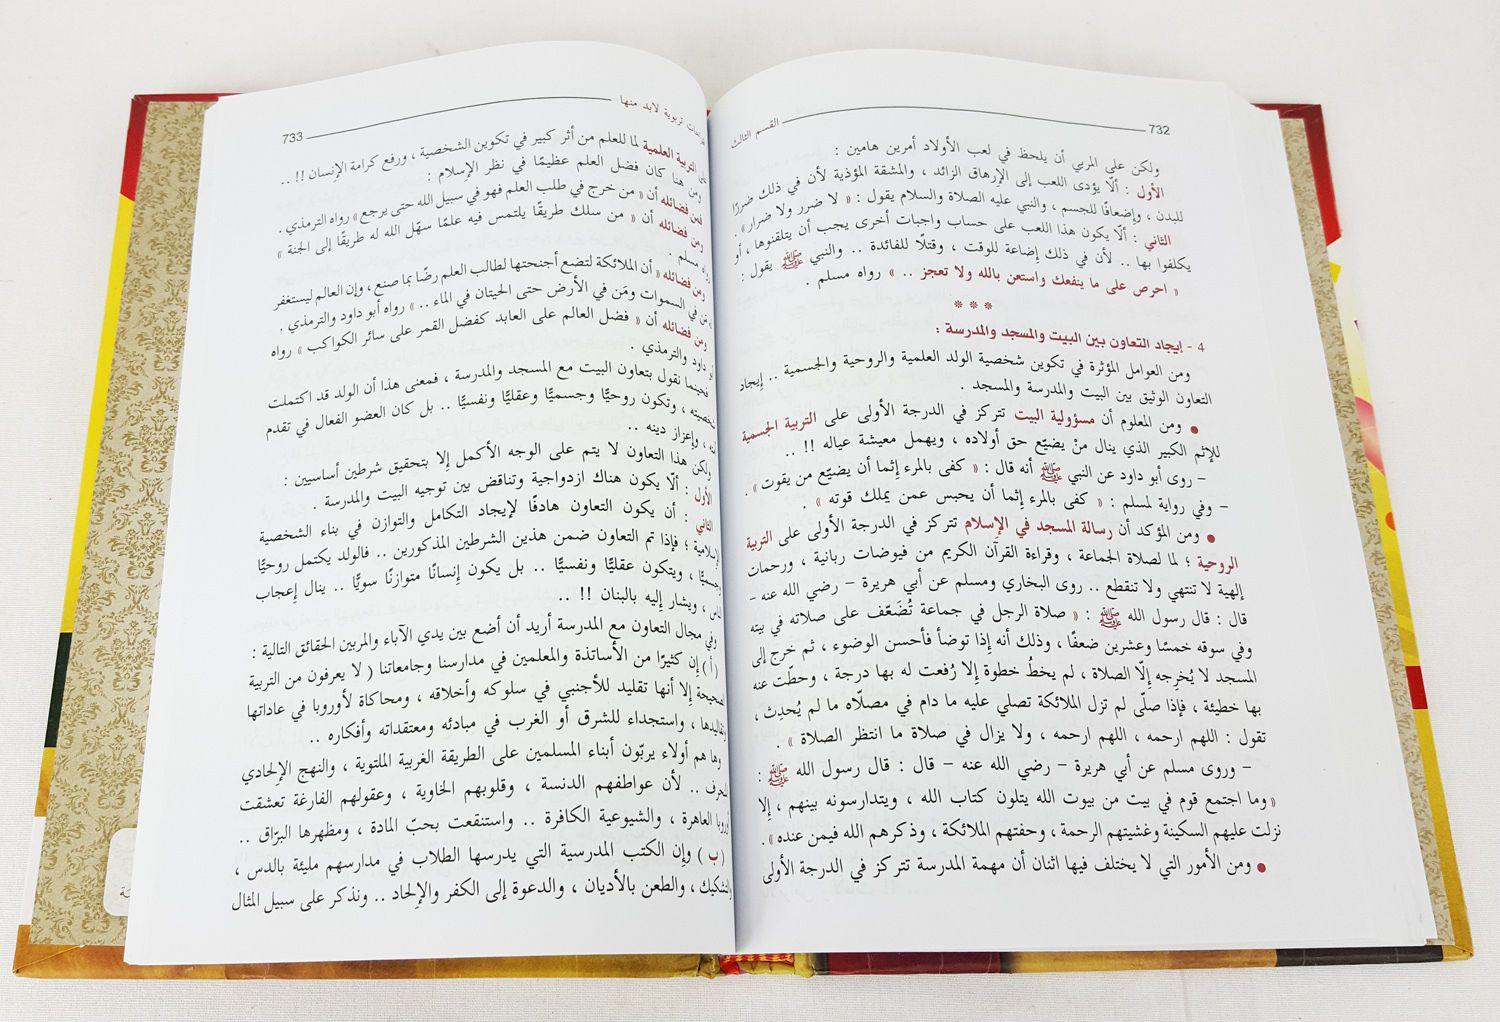 732
القسم الثالث
ولكن على المربي أن يلحظ في لعب الأولاد أمرين هامين :
الأول : ألّا يؤدى اللعب إلى الإرهاق الزائد ، والمشقة المؤذية لأن في ذلك ضررًا
للبدن ، وإضعافًا للجسم ، والنبي عليه الصلاة والسلام يقول : « لا ضرر ولا ضرار» .
الثاني : ألّا يكون هذا اللعب على حساب واجبات أخرى يجب أن يتلقنوها ، أو
يكلفوا بها .. لأن في ذلك إضاعة للوقت ، وقتلًا للفائدة .. والنبي ﷺ يقول :
« احرص على ما ينفعك واستعن بالله ولا تعجز .. » رواه مسلم .
* * *
4 - إيجاد التعاون بين البيت والمسجد والمدرسة :
ومن العوامل المؤثرة في تكوين شخصية الولد العلمية والروحية والجسمية .. إيجاد
التعاون الوثيق بين البيت والمدرسة والمسجد .
● ومن المعلوم أن مسؤولية البيت تتركز في الدرجة الأولى على التربية الجسمية
للإثم الكبير الذي ينال منْ يضيّع حق أولاده ، ويهمل معيشة عياله !! ..
– روى أبو داود عن النبي ﷺ أنه قال : « كفى بالمرء إثما أن يضيّع من يقوت» .
– وفي رواية لمسلم : « كفى بالمرء إثما أن يحبس عمن يملك قوته » .
● ومن المؤكد أن رسالة المسجد في الإسلام تتركز في الدرجة الأولى على التربية
الروحية ؛ لما لصلاة الجماعة ، وقراءة القرآن الكريم من فيوضات ربانية ، ورحمات
إلهية لا تنتهي ولا تنقطع .. روى البخاري ومسلم عن أبي هريرة – رضي الله عنه –
قال : قال رسول الله ﷺ : « صلاة الرجل في جماعة تُضَعّف على صلاته في بيته
وفي سوقه خمسًا وعشرين ضعفًا ، وذلك أنه إذا توضأ فأحسن الوضوء ، ثم خرج إلى
المسجد لا يُخرِجه إلّا الصلاة ، لم يخطُ خطوة إلا رُفعت له بها درجة ، وحطّت عنه
بها خطيئة ، فإذا صلّى لم تزل الملائكة تصلي عليه ما دام في مصلّاه ما لم يُحدِث ،
تقول : اللهم ارحمه ، اللهم ارحمه ، ولا يزال في صلاة ما انتظر الصلاة » .
– وروى مسلم عن أبي هريرة – رضي الله عنه – قال : قال رسول الله ﷺ :
« وما اجتمع قوم في بيت من بيوت الله يتلون كتاب الله ، ويتدارسونه بينهم ، إلا
نزلت عليهم السكينة وغشيتهم الرحمة ، وحفتهم الملائكة ، وذكرهم الله فيمن عنده » .
● ومن الأمور التي لا يختلف فيها اثنان أن مهمة المدرسة تتركز في الدرجة الأولى
تربوية لابد منها
733
التربية العلمية لما للعلم من أثر كبير في تكوين الشخصية ، ورفع كرامة الإنسان !! ..
ومن هنا كان فضل العلم عظيمًا في نظر الإسلام :
فمن فضائله أن « من خرج في طلب العلم فهو في سبيل الله حتى يرجع » رواه الترمذي .
ومن فضائله أن « من سلك طريقًا يلتمس فيه علمًا سهّل الله له طريقًا إلى الجنة »
رواه مسلم .
ومن فضائله « أن الملائكة لتضع أجنحتها لطالب العلم رضًا بما صنع ، وإن العالم ليستغفر
مَن في السموات ومَن في الأرض حتى الحيتان في الماء .. » رواه أبو داود والترمذي .
ومن فضائله أن « فضل العالم على العابد كفضل القمر على سائر الكواكب » رواه
داود والترمذي .
فحينما نقول بتعاون البيت مع المسجد والمدرسة ، فمعنى هذا أن الولد قد اكتملت
شخصيته ، وتكون روحيًّا وجسميًّا وعقليًّا ونفسيًّا .. بل كان العضو الفعال في تقدم
، وإعزاز دينه ..
ولكن هذا التعاون لا يتم على الوجه الأكمل إلا بتحقيق شرطين أساسيين :
الأول : ألّا يكون هناك ازدواجية وتناقض بين توجيه البيت والمدرسة .
الثاني : أن يكون التعاون هادفًا لإيجاد التكامل والتوازن في بناء الشخصية
الإسلامية ؛ فإذا تم التعاون ضمن هذين الشرطين المذكورين .. فالولد يكتمل روحيًّا
وجسميًّا ، ويتكون عقليًّا ونفسيًّا .. بل يكون إنسانًا متوازنًا سويًّا .. ينال إعجاب
الناس ، ويشار إليه بالبنان !! ..
وفي مجال التعاون مع المدرسة أريد أن أضع بين يدي الآباء والمربين الحقائق التالية :
( أ ) إن كثيرًا من الأساتذة والمعلمين في مدارسنا وجامعاتنا ( لا يعرفون من التربية
الصحيحة إلا أنها تقليد للأجنبي في سلوكه وأخلاقه ، ومحاكاة لأوروبا في عاداتها
وتقاليدها ، واستجداء للشرق أو الغرب في مبادئه ومعتقداته وأفكاره ..
وها هم أولاء يربّون أبناء المسلمين على الطريقة الغربية الملتوية ، والنهج الإلحادي
المنحرف .. لأن عواطفهم الدنسة ، وقلوبهم الخاوية ، وعقولهم الفارغة تعشقت
أوروبا العاهرة ، والشيوعية الكافرة .. واستنقعت بحبّ المادة ، ومظهرها البرّاق ..
( ب ) وإن الكتب المدرسية التي يدرسها الطلاب في مدارسهم مليئة بالدس ،
والتشكيك ، والطعن بالأديان ، والدعوة إلى الكفر والإلحاد .. ونذكر على سبيل المثال